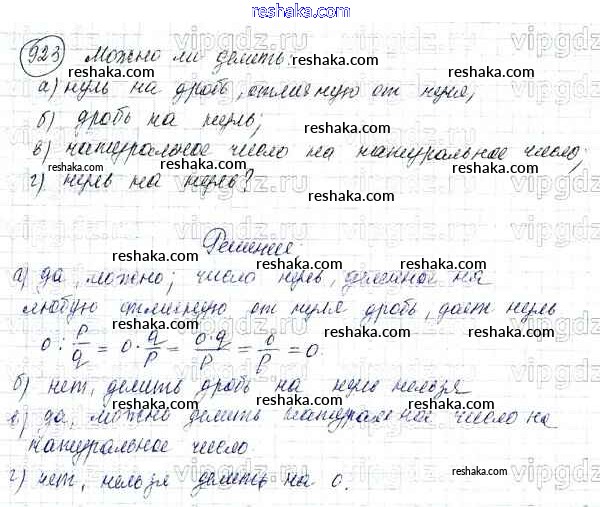 923 Можно ли делить
а) нуль на дробь, отличную от нуля;
б) дробь на нуль;
в) натуральное число на натуральное число;
г) нуль на нуль?
Решение:
а) да, можно; число нуль, деленное на
любую отличную от нуля дробь, дает нуль
0 : p/q = 0 · q/p = 0·q/p = 0/p = 0.
б) нет, делить дробь на нуль нельзя
в) да, можно делить натуральное число на
натуральное число.
г) нет, нельзя делить на 0.